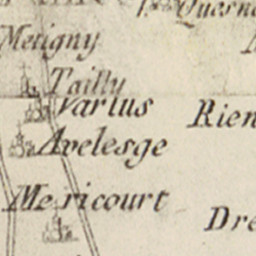 Quesno
Metigny
Tailly
Warlus
Rien
Avelesge
Mericourt
Dre